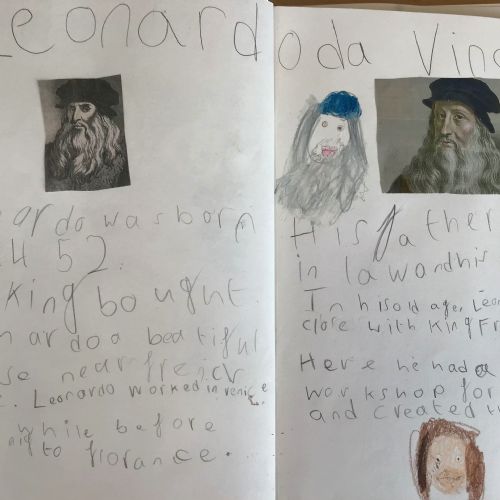 Leonardo da Vinc
eardo was born
1452.
king bought
nardo a beatiful
se near
. Leonardo worked in venice
while before
to florance.
His father
in law and his
In his old age, Leon
close with King Fr
Here he had a
workshop for
and created